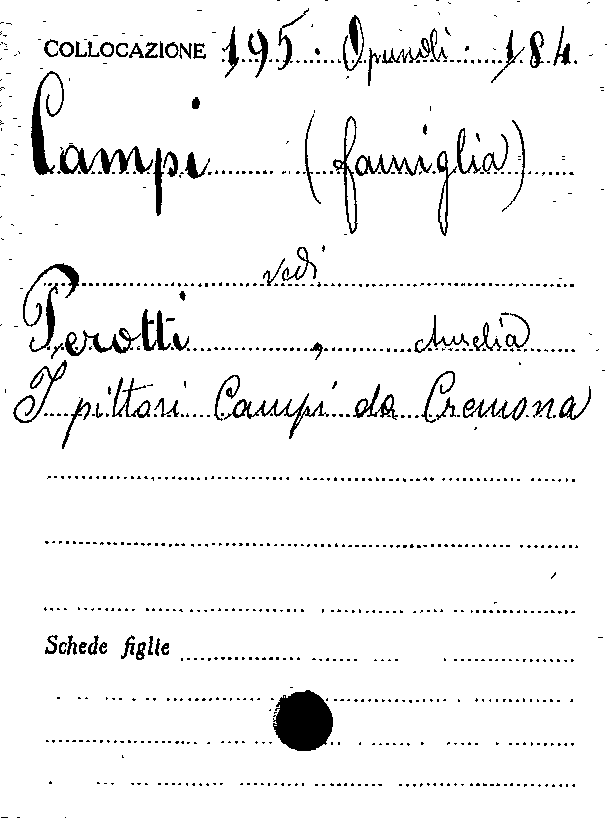 COLLOCAZIONE 195. Opuscoli. 184
Campi (famiglia)
vedi
Perotti, Aurelia
I pittori Campi da Cremona
Schede figlie